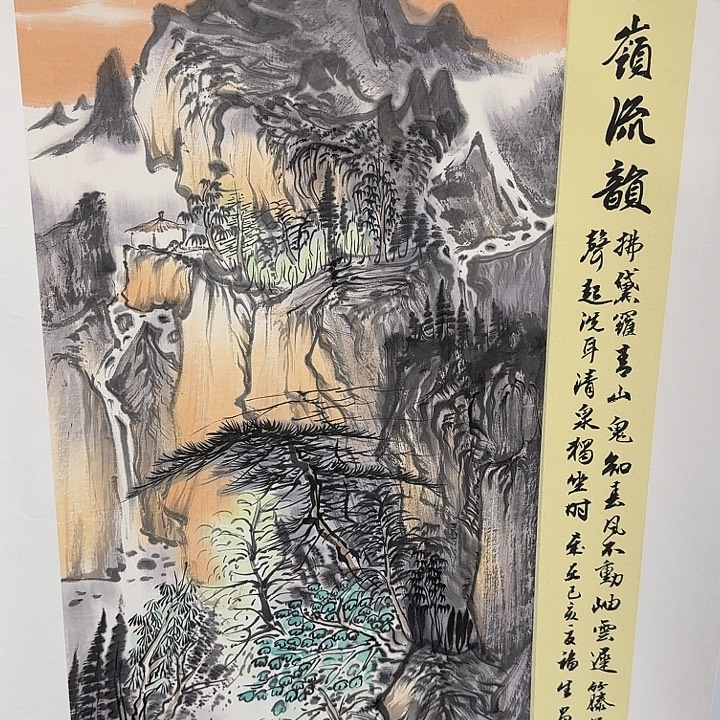 嶺流韻
拂黛羅青山鬼知春風不動岫雲遲籐
聲起洗耳清泉獨坐時歲在己亥夏福生